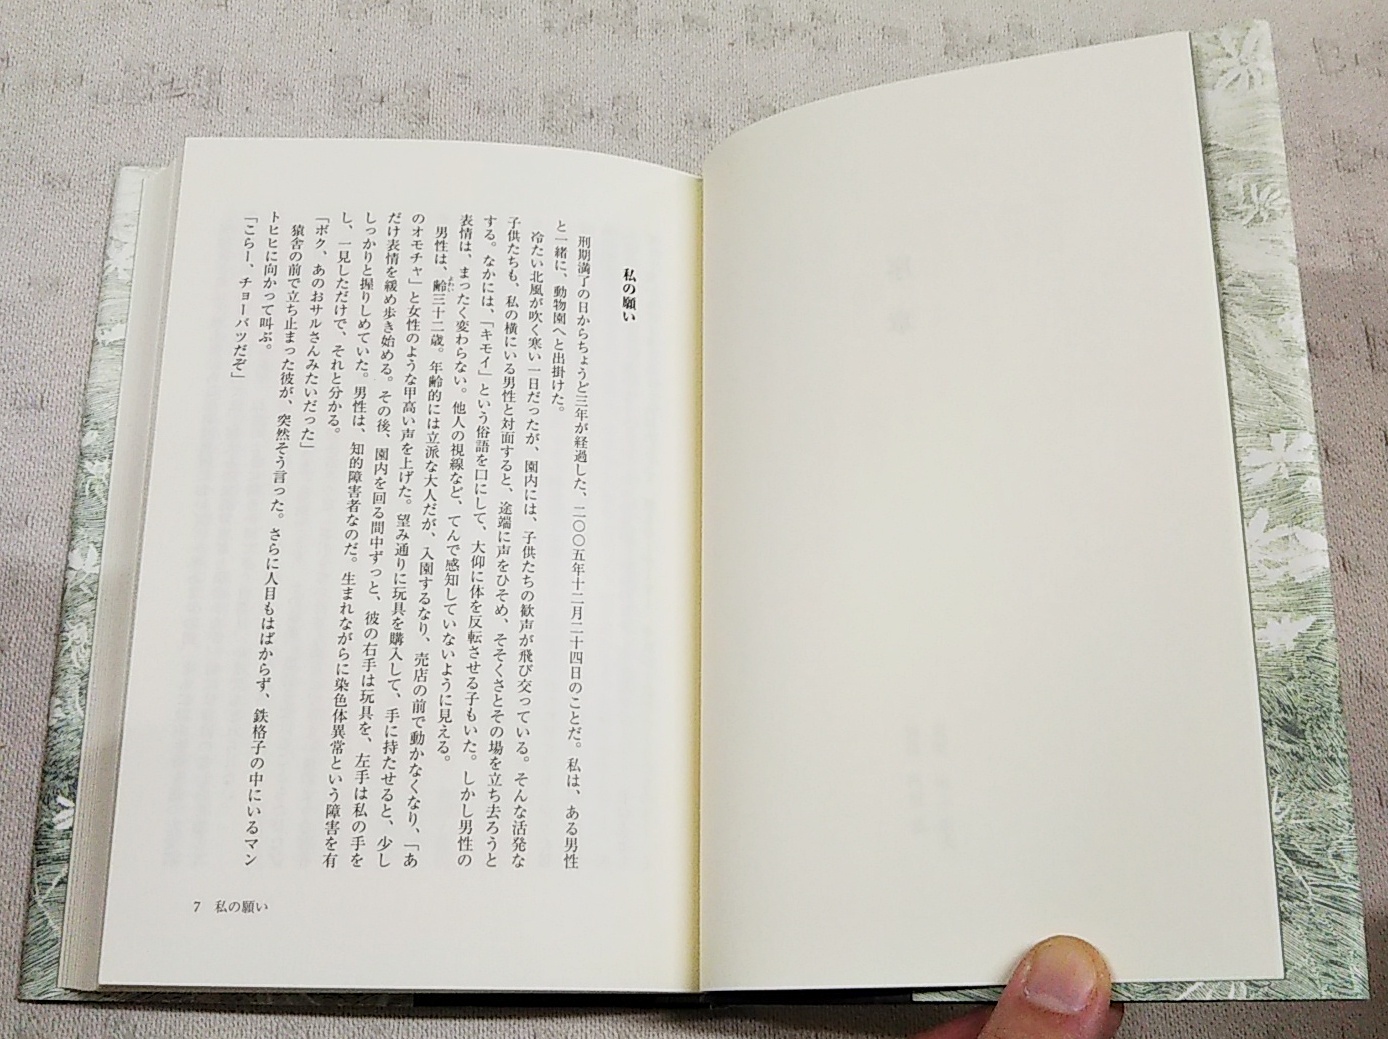 私の願い
刑期満了の日からちょうど三年が経過した、二〇〇五年十二月二十四日のことだ。私は、ある男性
と一緒に、動物園へと出掛けた。
冷たい北風が吹く寒い一日だったが、園内には、子供たちの歓声が飛び交っている。そんな活発な
子供たちも、私の横にいる男性と対面すると、途端に声をひそめ、そそくさとその場を立ち去ろうと
する。なかには、「キモイ」という俗語を口にして、大仰に体を反転させる子もいた。しかし男性の
表情は、まったく変わらない。他人の視線など、てんで感知していないように見える。
男性は、齢三十二歳。年齢的には立派な大人だが、入園するなり、売店の前で動かなくなり、「あ
のオモチャ」と女性のような甲高い声を上げた。望み通りに玩具を購入して、手に持たせると、少し
だけ表情を緩め歩き始める。その後、園内を回る間中ずっと、彼の右手は玩具を、左手は私の手を
しっかりと握りしめていた。男性は、知的障害者なのだ。生まれながらに染色体異常という障害を有
し、一見しただけで、それと分かる。
「ボク、あのおサルさんみたいだった」
猿舎の前で立ち止まった彼が、突然そう言った。さらに人目もはばからず、鉄格子の中にいるマン
トヒヒに向かって叫ぶ。
「こらー、チョーバツだぞ」
7 私の願い